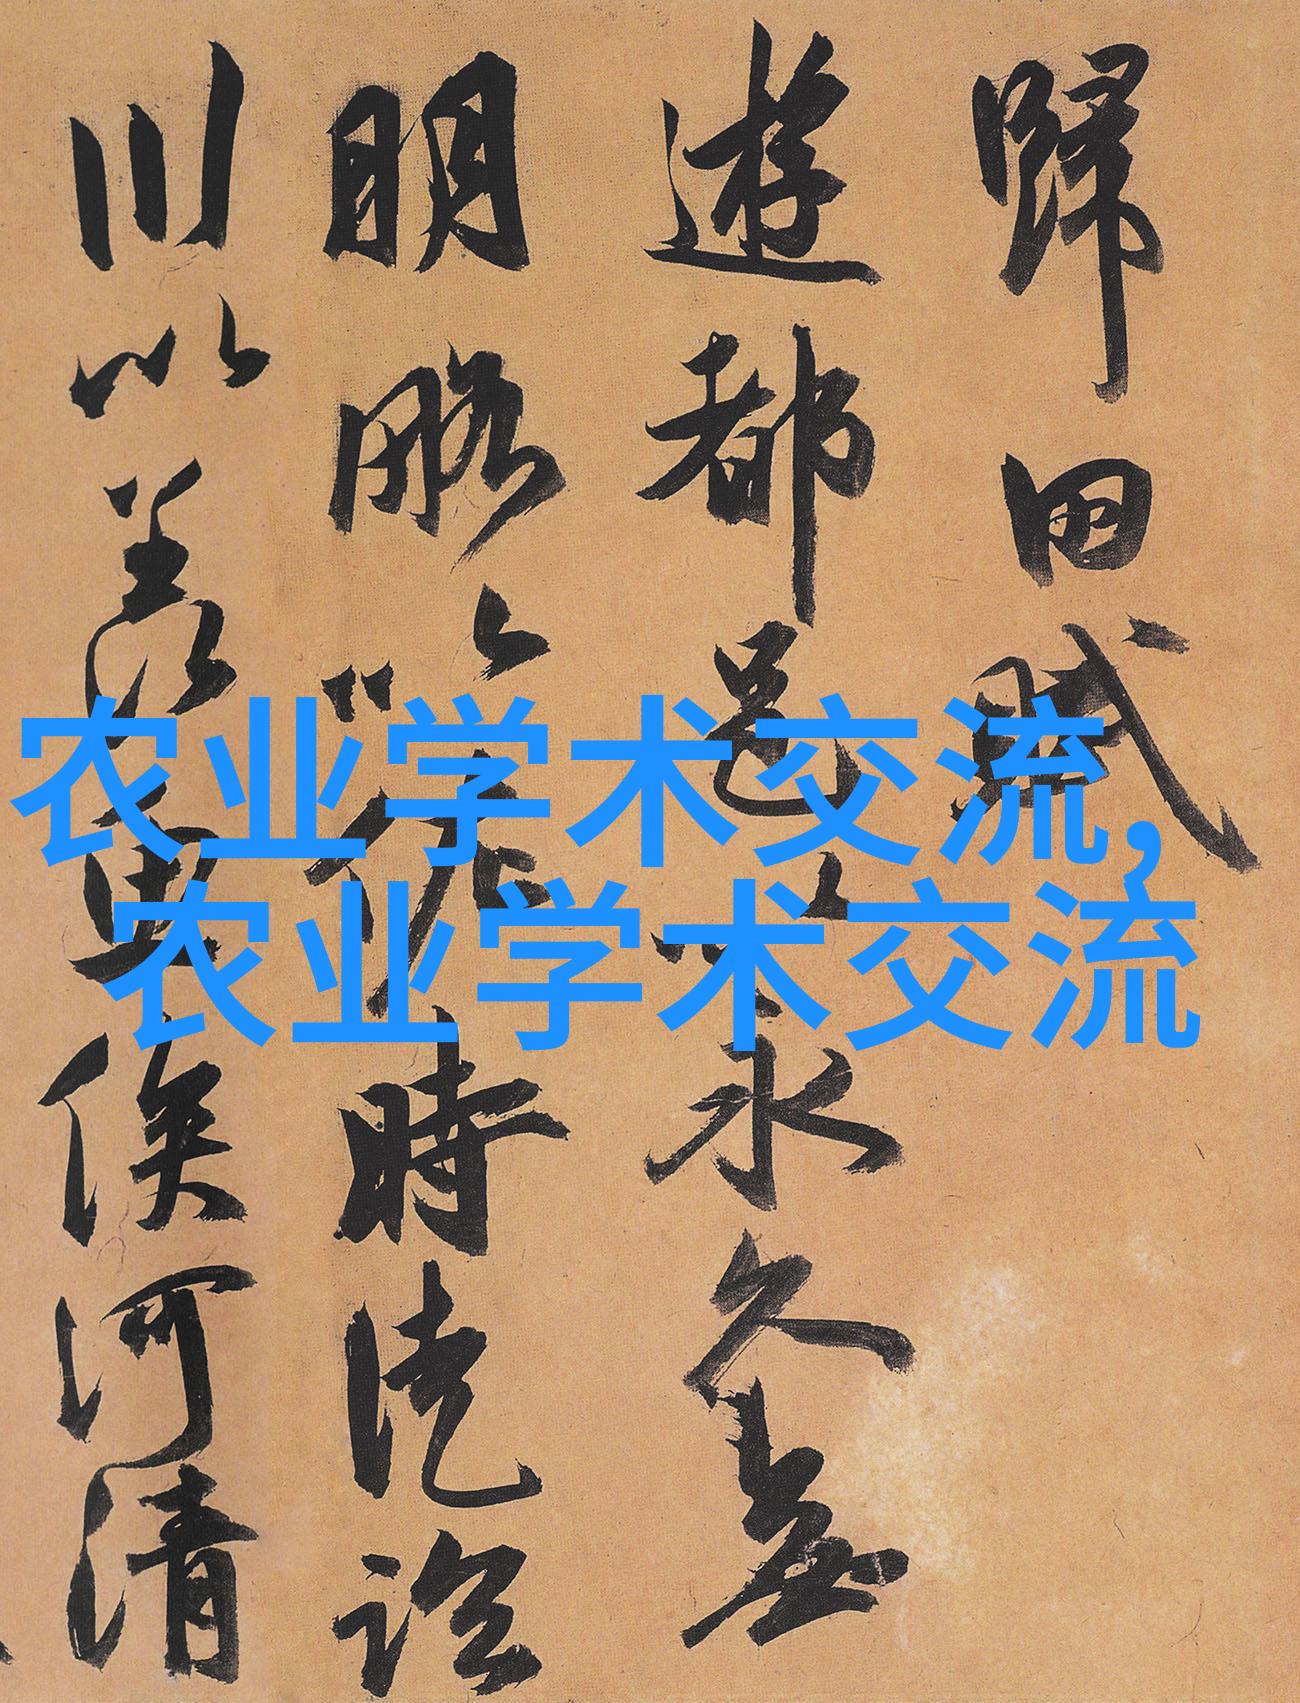 歸田賦
遊都邑以永久無
明略以佐時徒臨
川以羨魚俟河清
农业学术交流,
农业学术交流